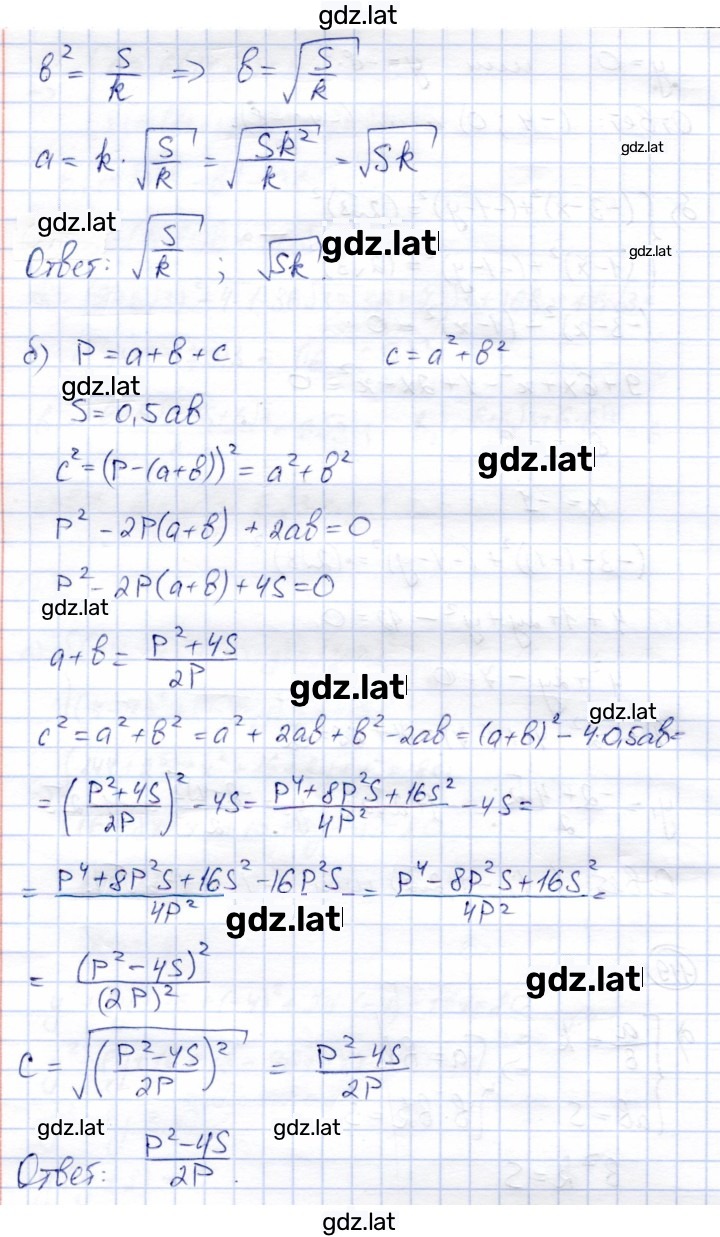 gdz.lat
в² = S/k => в = √(S/k)
a = k · √(S/k) = √(Sk²/k) = √Sk
gdz.lat
gdz.lat
Ответ: √(S/k) ; √Sk.
gdz.lat
gdz.lat
б) P = a + в + c c = a² + в²
gdz.lat
S = 0,5aв
c² = (P-(a+в))² = a² + в²
gdz.lat
P² - 2P(a+в) + 2aв = 0
P² - 2P(a+в) + 4S = 0
gdz.lat
a + в = (P² + 4S)/2P
gdz.lat
gdz.lat
c² = a² + в² = a² + 2aв + в² - 2aв = (a+в)² - 4·0,5aв =
= ((P²+4S)/2P)² - 4S = (P⁴ + 8P²S + 16S²)/4P² - 4S =
= (P⁴ + 8P²S + 16S² - 16P²S)/4P² = (P⁴ - 8P²S + 16S²)/4P² =
gdz.lat
= (P² - 4S)²/(2P)²
gdz.lat
c = √((P²-4S)/2P)² = (P²-4S)/2P
gdz.lat
gdz.lat
Ответ: (P²-4S)/2P.
gdz.lat